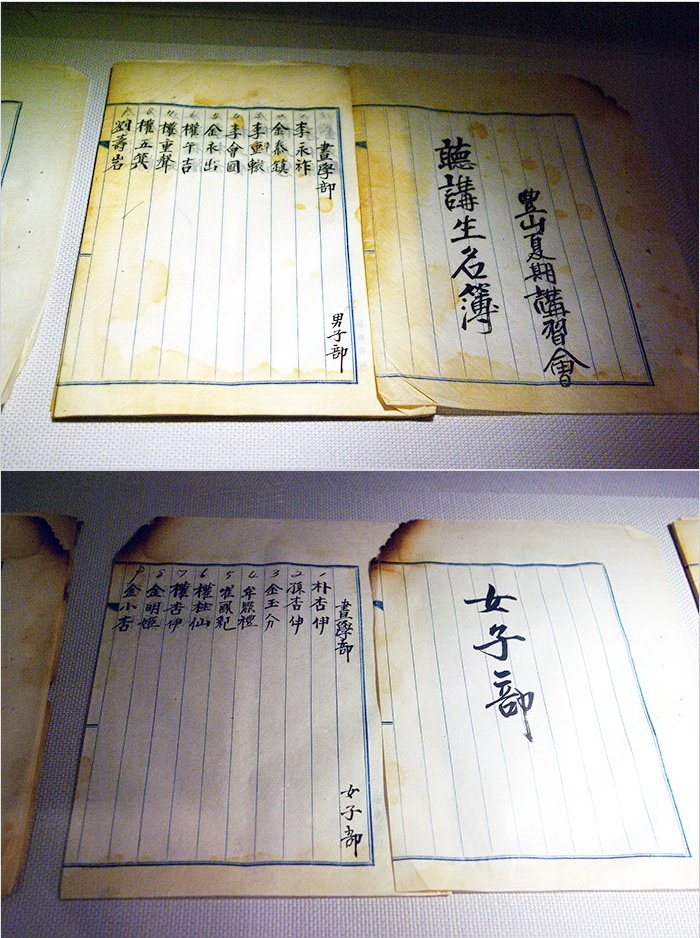 豊山夏期講習會
聽講生名簿
晝學部
男子部
1 李永祚
2 金泰鎮
3 李重轍
4 李會國
5 金永出
6 權午吉
7 權重聲
8 權五
9 劉壽岩
女子部
晝學部
女子部
1 朴杏伊
2 孫杏伊
3 金玉分
4 牟殷禮
5 崔
6 權桂仙
7 權杏伊
8 金明姬
9 金小杏